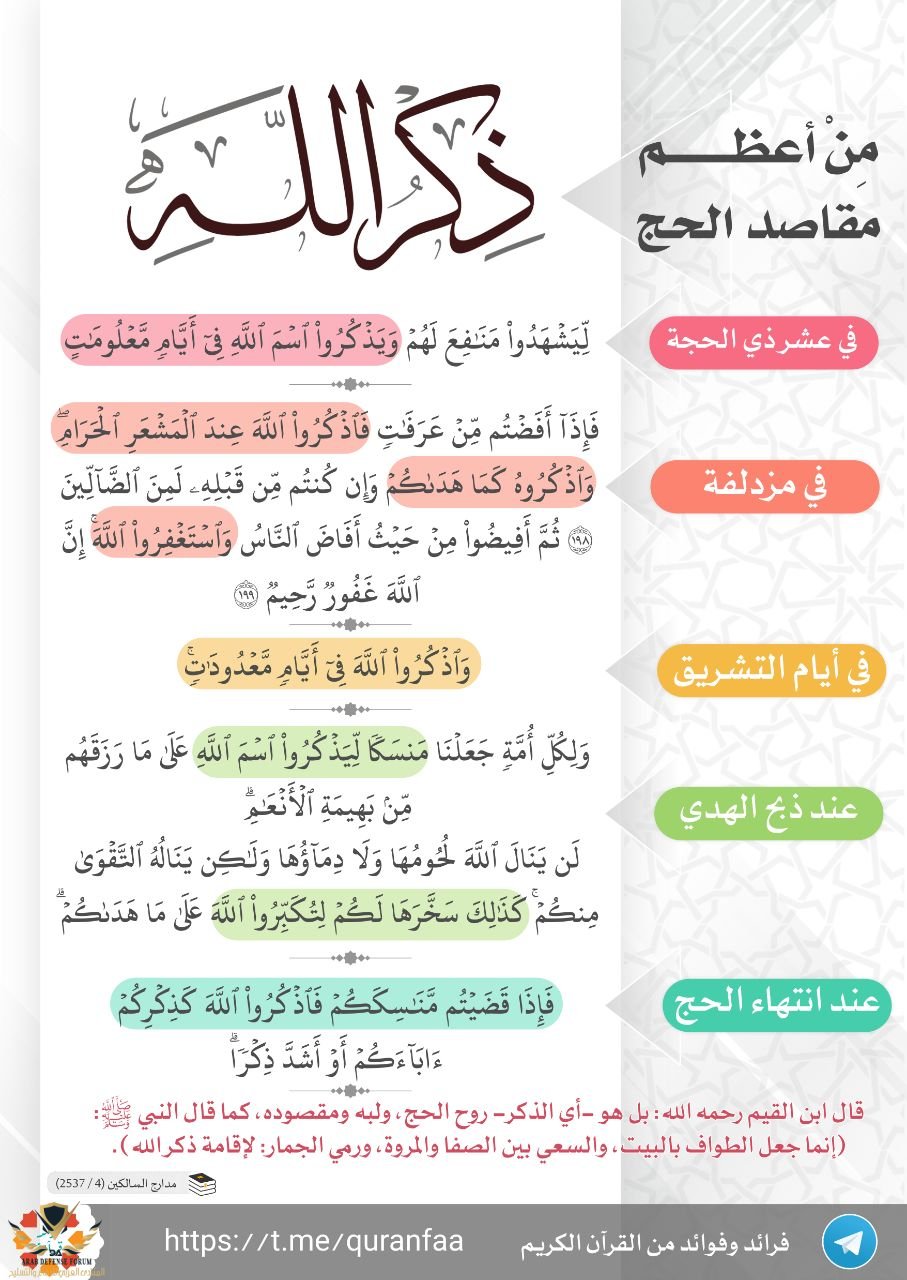 مِنْ أعظـــــم
مَقاصد الحج
ذِكْرُ اللَّهِ
في عشر ذي الحجة
لِّيَشْهَدُوا۟ مَنَٰفِعَ لَهُمْ وَيَذْكُرُوا۟ ٱسْمَ ٱللَّهِ فِىٓ أَيَّامٍ مَّعْلُومَٰتٍ
في مزدلفة
فَإِذَآ أَفَضْتُم مِّنْ عَرَفَٰتٍ فَٱذْكُرُوا۟ ٱللَّهَ عِندَ ٱلْمَشْعَرِ ٱلْحَرَامِ ۖ
وَٱذْكُرُوهُ كَمَا هَدَىٰكُمْ وَإِن كُنتُم مِّن قَبْلِهِۦ لَمِنَ ٱلضَّآلِّينَ
١٩٨ ثُمَّ أَفِيضُوا۟ مِنْ حَيْثُ أَفَاضَ ٱلنَّاسُ وَٱسْتَغْفِرُوا۟ ٱللَّهَ ۚ إِنَّ
ٱللَّهَ غَفُورٌ رَّحِيمٌ ١٩٩
في أيام التشريق
وَٱذْكُرُوا۟ ٱللَّهَ فِىٓ أَيَّامٍ مَّعْدُودَٰتٍ ۚ
عند ذبح الهدي
وَلِكُلِّ أُمَّةٍ جَعَلْنَا مَنسَكًا لِّيَذْكُرُوا۟ ٱسْمَ ٱللَّهِ عَلَىٰ مَا رَزَقَهُم
مِّنۢ بَهِيمَةِ ٱلْأَنْعَٰمِ ۗ
لَن يَنَالَ ٱللَّهَ لُحُومُهَا وَلَا دِمَآؤُهَا وَلَٰكِن يَنَالُهُ ٱلتَّقْوَىٰ
مِنكُمْ ۚ كَذَٰلِكَ سَخَّرَهَا لَكُمْ لِتُكَبِّرُوا۟ ٱللَّهَ عَلَىٰ مَا هَدَىٰكُمْ ۗ
عند انتهاء الحج
فَإِذَا قَضَيْتُم مَّنَٰسِكَكُمْ فَٱذْكُرُوا۟ ٱللَّهَ كَذِكْرِكُمْ
ءَابَآءَكُمْ أَوْ أَشَدَّ ذِكْرًا ۗ
قال ابن القيم رحمه الله: بل هو -أي الذكر- روح الحج، ولبه ومقصوده، كما قال النبي ﷺ:
(إنما جعل الطواف بالبيت، والسعي بين الصفا والمروة، ورمي الجمار: لإقامة ذكر الله).
مدارج السالكين (4 / 2537)
فرائد وفوائد من القرآن الكريم
https://t.me/quranfaa
ARAB DEFENSE FORUM
المنتدى العربي للدفاع والتسليح